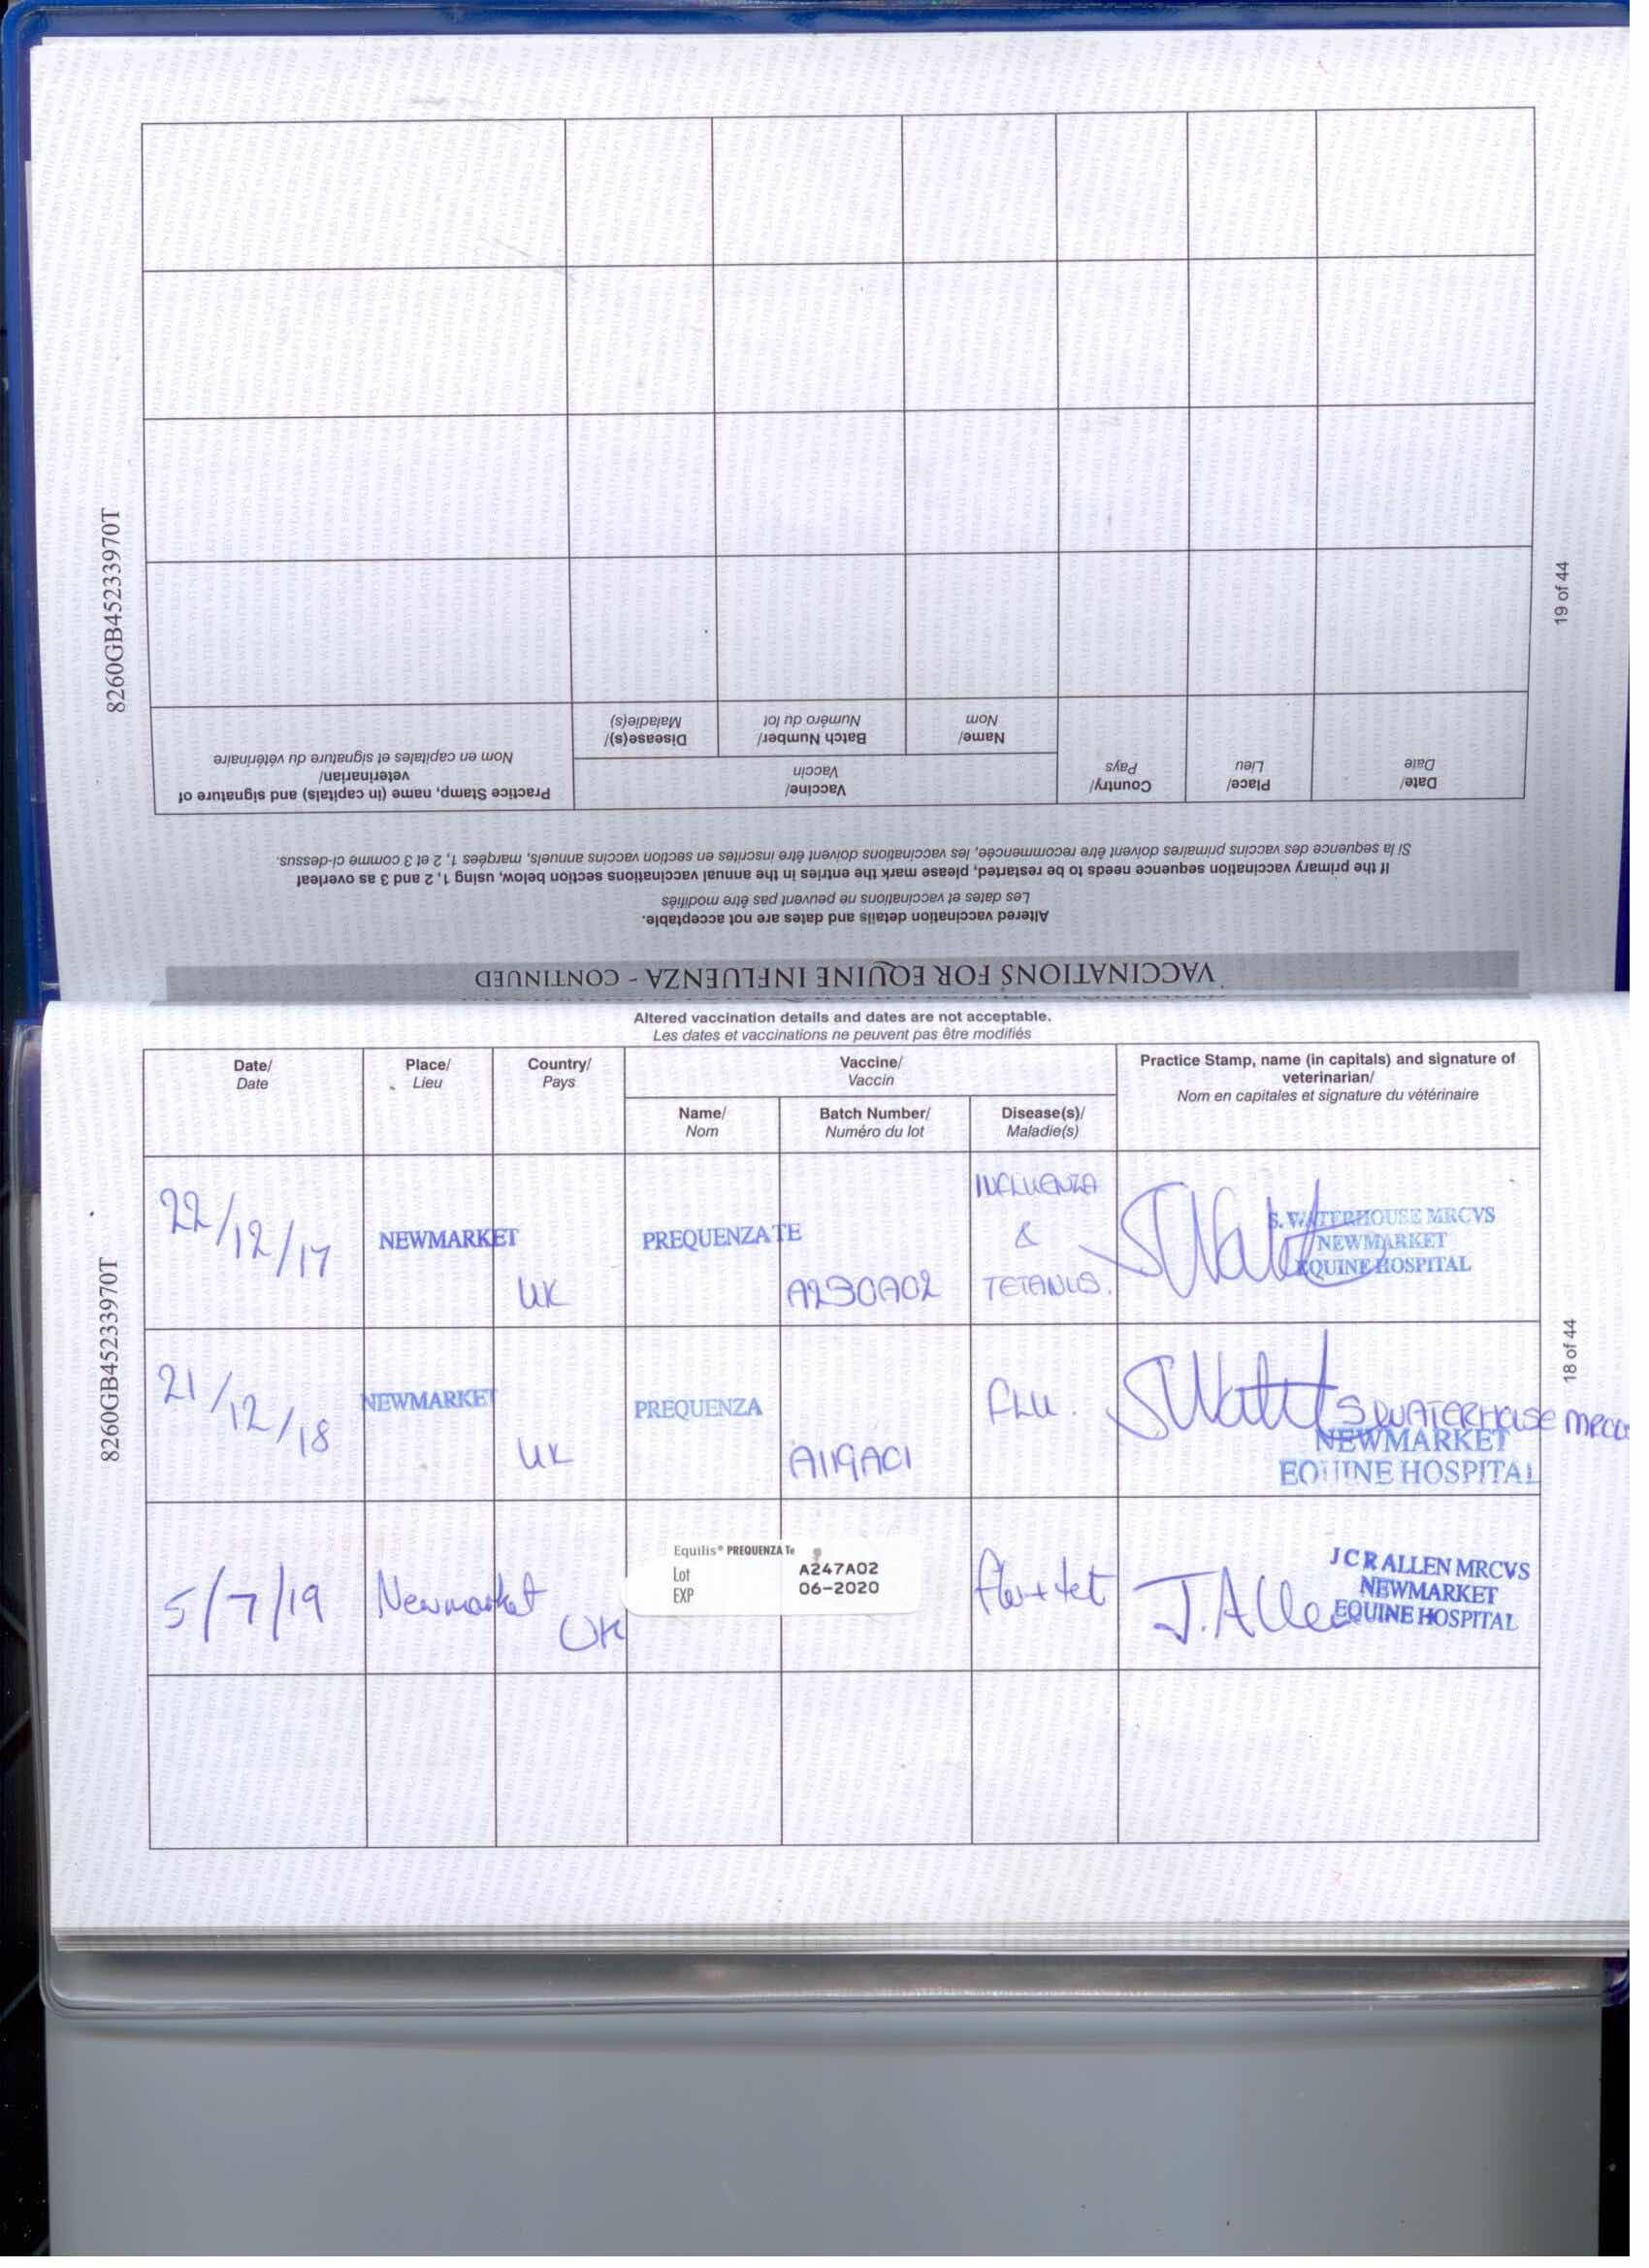 8260GB45233970T
19 of 44
VACCINATIONS FOR EQUINE INFLUENZA - CONTINUED
Altered vaccination details and dates are not acceptable.
Les dates et vaccinations ne peuvent pas être modifiés
If the primary vaccination sequence needs to be restarted, please mark the entries in the annual vaccinations section below, using 1, 2 and 3 as overleaf
Si la sequence des vaccins primaires doivent être recommencée, les vaccinations doivent être inscrites en section vaccins annuels, marqées 1, 2 et 3 comme ci-dessus.
Date/
Date
Place/
Lieu
Country/
Pays
Vaccine/
Vaccin
Name/
Nom
Batch Number/
Numéro du lot
Disease(s)/
Maladie(s)
Practice Stamp, name (in capitals) and signature of
veterinarian/
Nom en capitales et signature du vétérinaire
8260GB45233970T
18 of 44
Altered vaccination details and dates are not acceptable.
Les dates et vaccinations ne peuvent pas être modifiés
Date/
Date
Place/
Lieu
Country/
Pays
Vaccine/
Vaccin
Name/
Nom
Batch Number/
Numéro du lot
Disease(s)/
Maladie(s)
Practice Stamp, name (in capitals) and signature of
veterinarian/
Nom en capitales et signature du vétérinaire
22/12/17
NEWMARKET
UK
PREQUENZA TE
A230A02
INFLUENZA
&
TETANUS.
S. WATERHOUSE MRCVS
NEWMARKET
EQUINE HOSPITAL
21/12/18
NEWMARKET
UK
PREQUENZA
A119AC1
FLU.
S WATERHOUSE MRCVS
NEWMARKET
EQUINE HOSPITAL
5/7/19
Newmarket
UK
Equilis® PREQUENZA Te
Lot A247A02
EXP 06-2020
flu + tet
J. Allen
J C R ALLEN MRCVS
NEWMARKET
EQUINE HOSPITAL